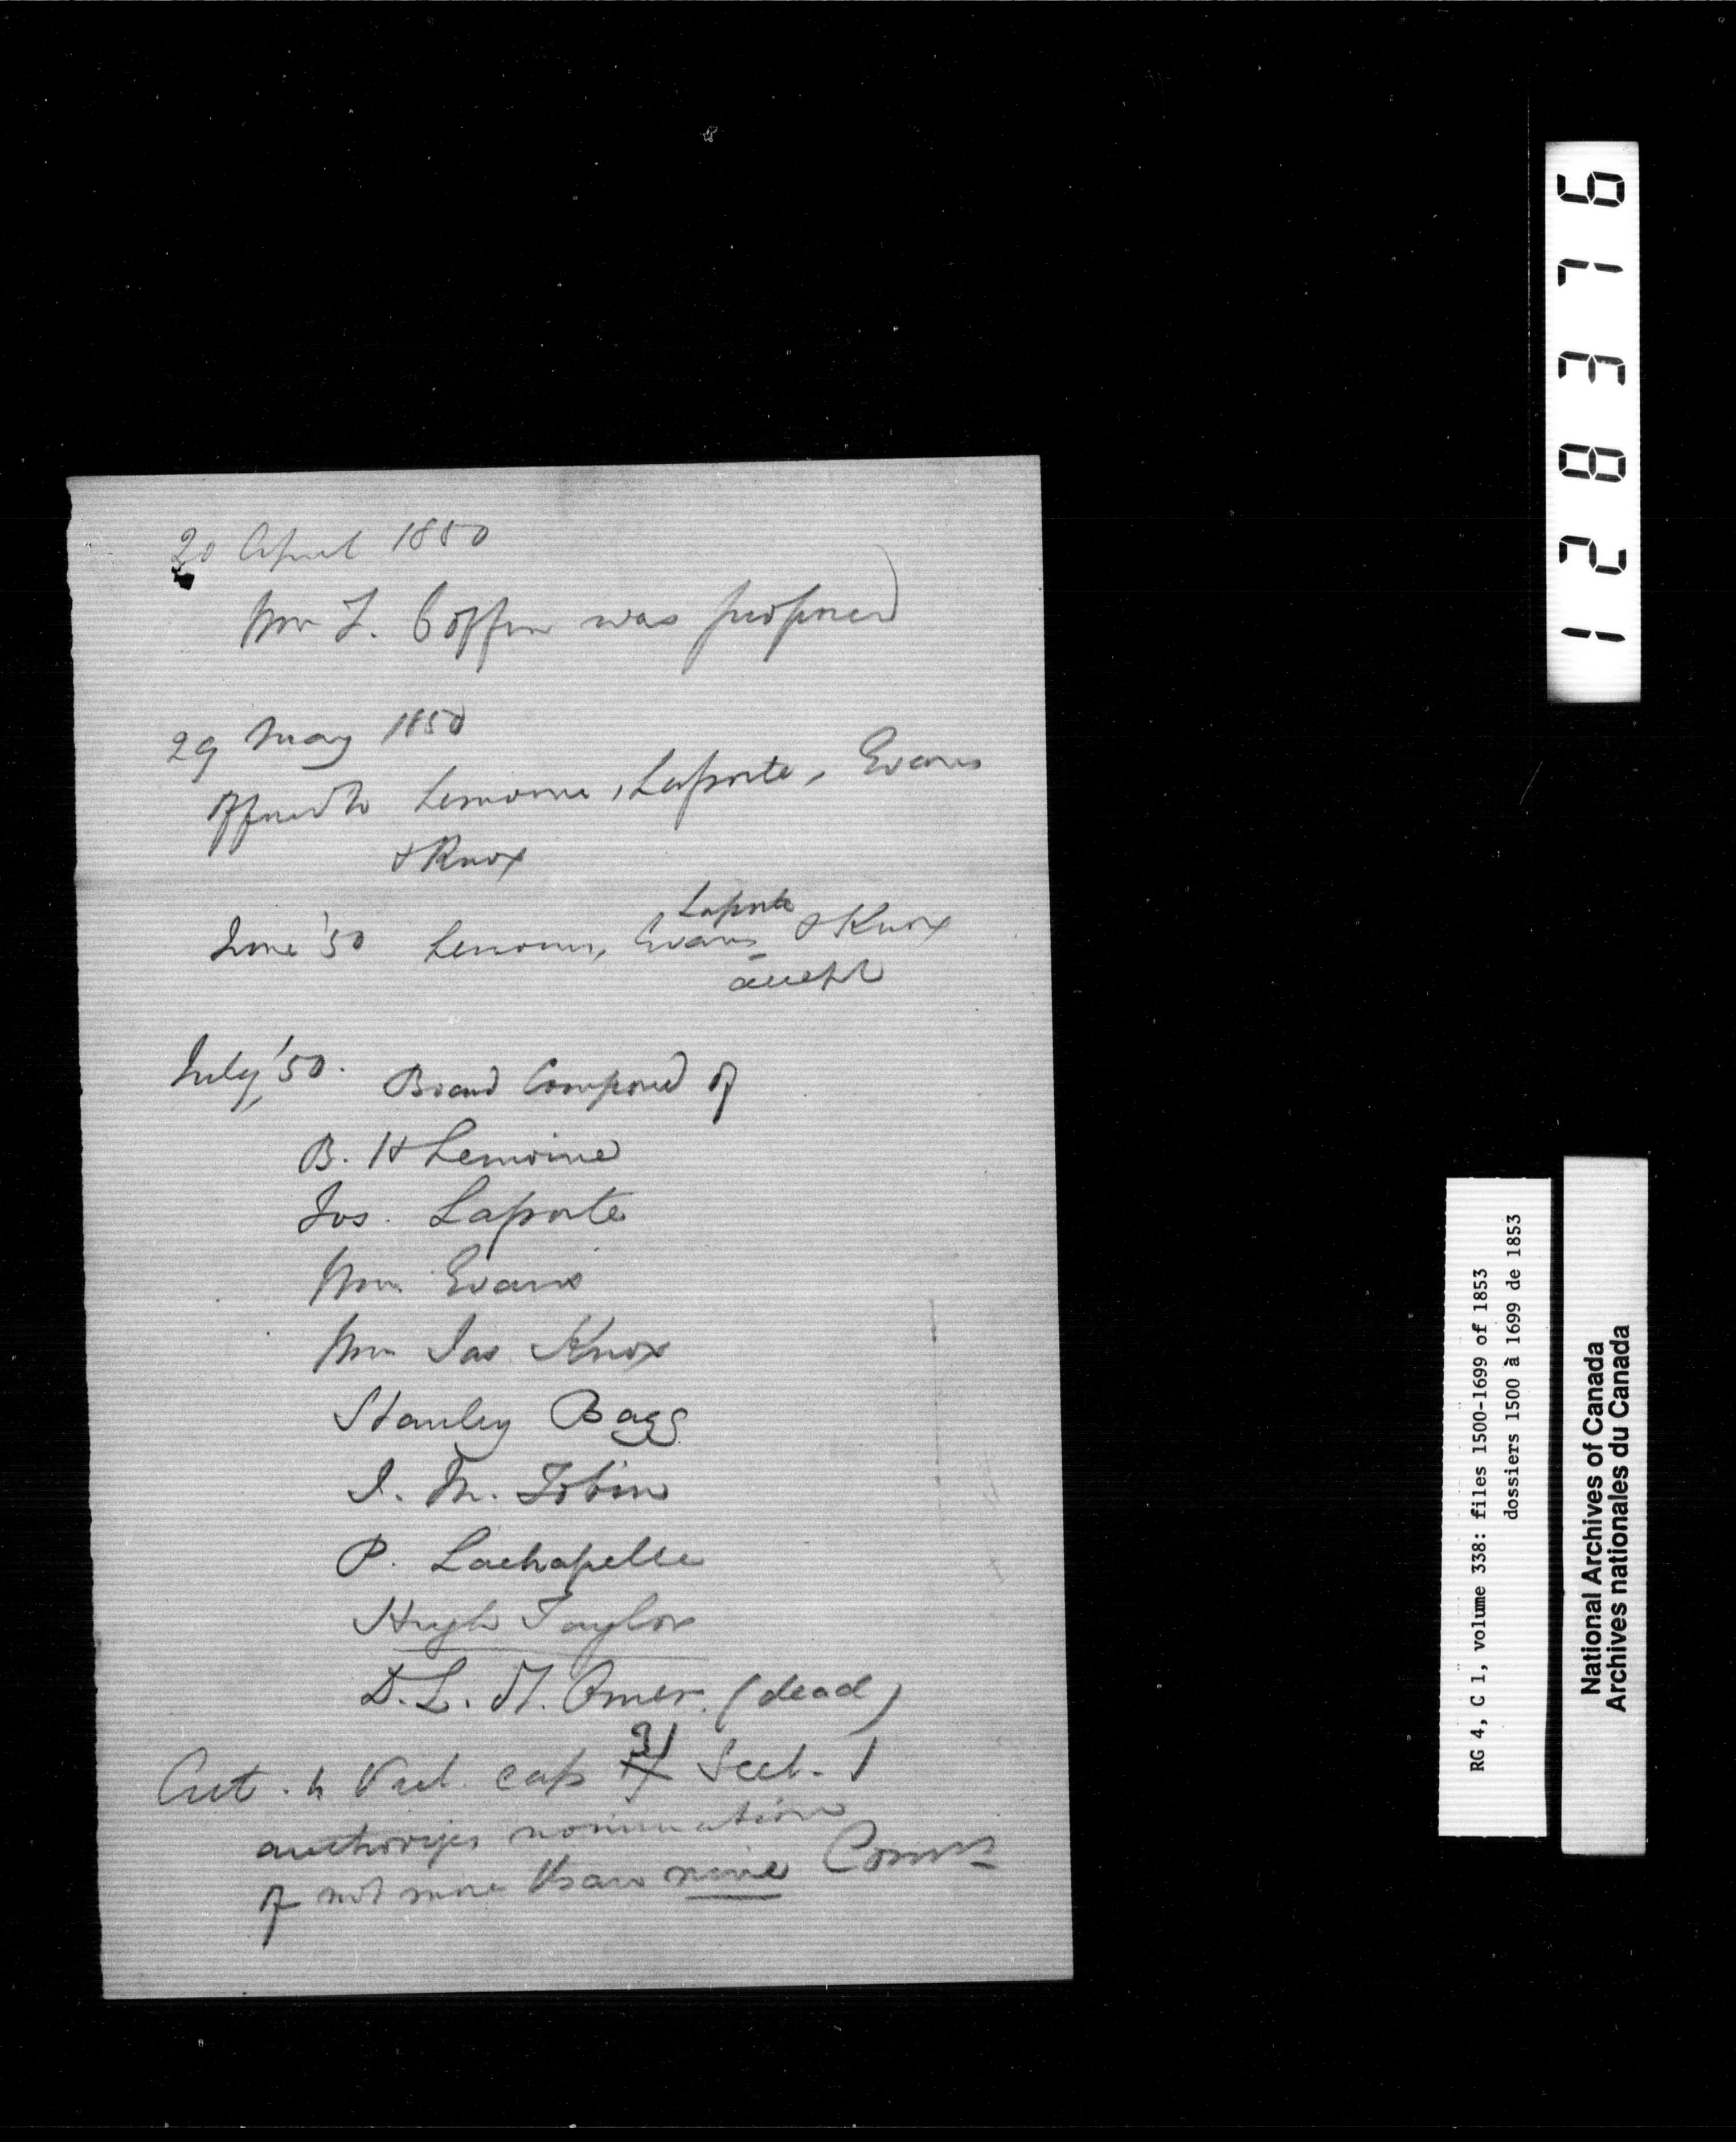 20 April 1850
Mr. T. Coffin was proposed
29 May 1850
offered to Lemoine, Laporte, Evans
& Knox
Laporte
June '50 Lemoine, Evans & Knox
accept
July '50. Board Composed of
B. H Lemoine
Jos. Laporte
Wm. Evans
Wm Jas Knox
Stanley Bagg
J. M. Tobin
P. Lachapelle
Hugh Taylor
D. L. St. Omer. (dead)
31
Act. 4 Vict. cap 7 Sect. 1
authorizes nomination
of not more than nine Comrs
128376
RG 4, C 1, volume 338: files 1500-1699 of 1853
dossiers 1500 à 1699 de 1853
National Archives of Canada
Archives nationales du Canada